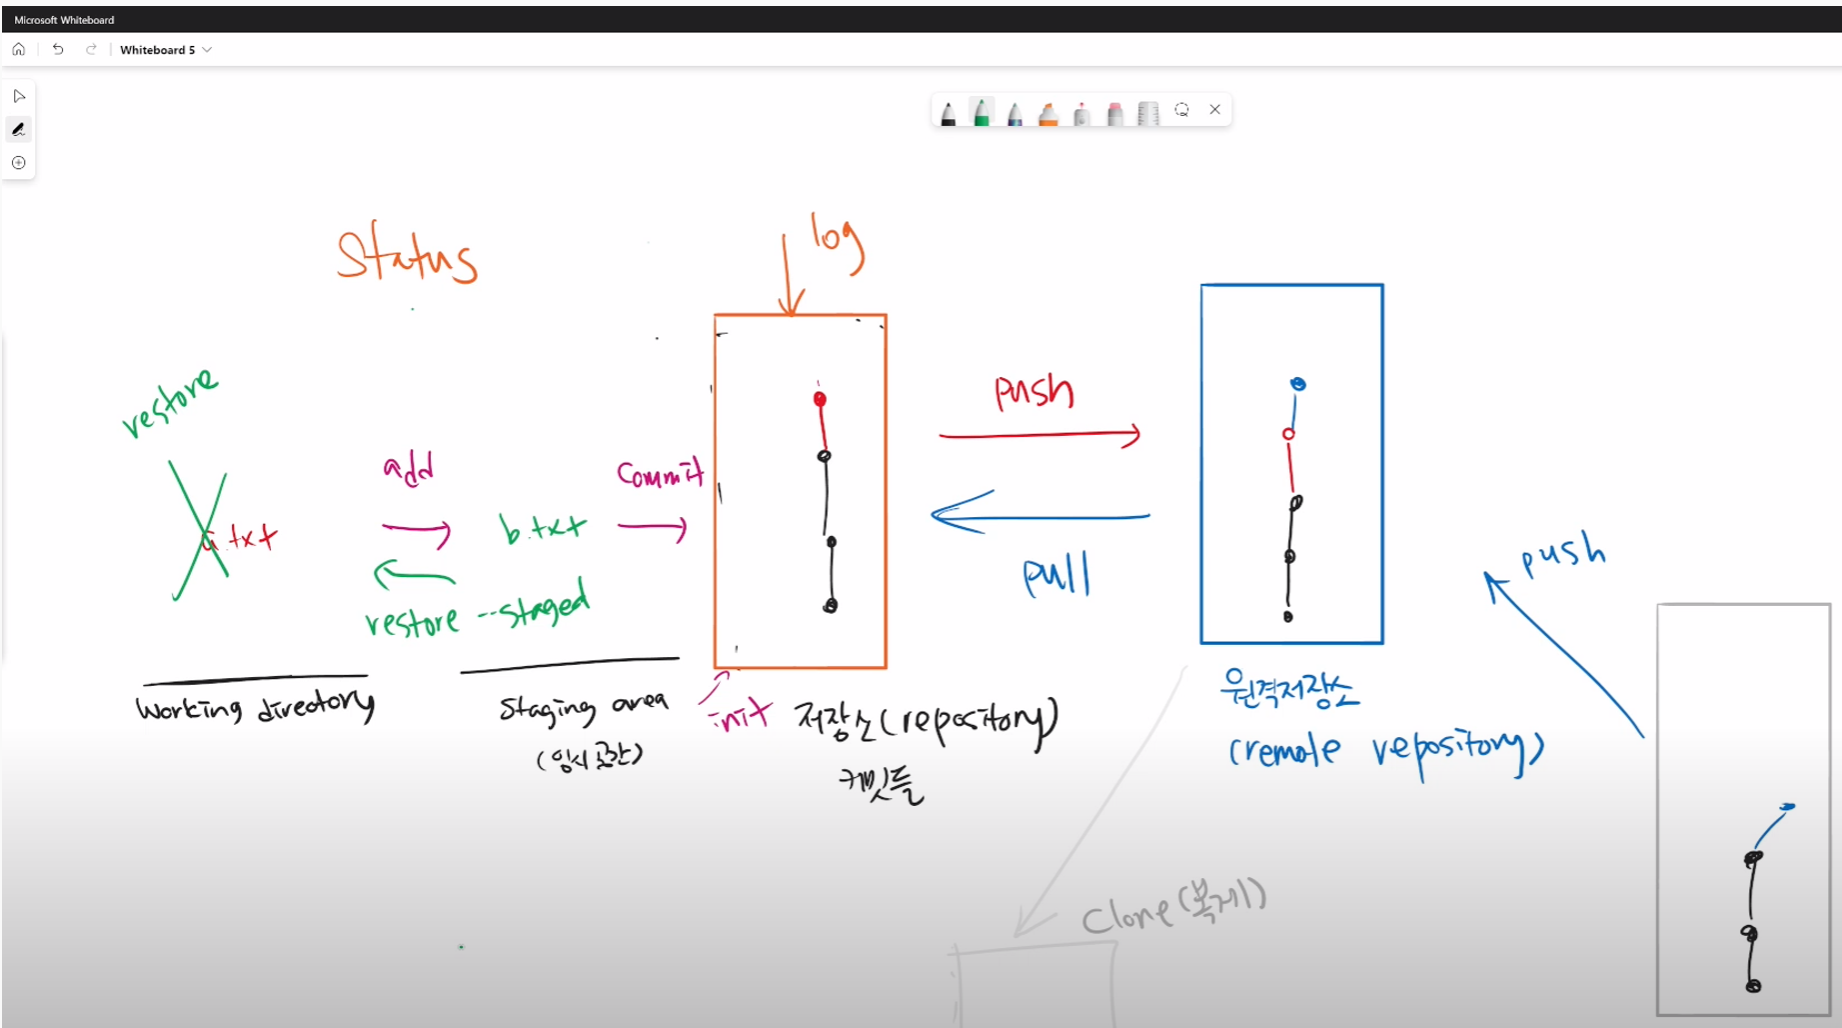 Microsoft Whiteboard
Whiteboard 5
Status
log
restore
add
Commit
push
a.txt
b.txt
pull
push
restore --staged
Working directory
Staging area
(임시공간)
init
저장소(repository)
커밋들
원격저장소
(remote repository)
Clone(복제)